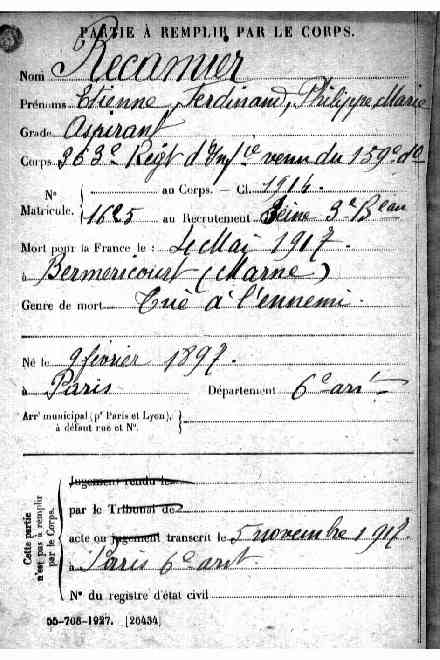 PARTIE À REMPLIR PAR LE CORPS.
Nom Récamier
Prénoms Etienne, Ferdinand, Philippe, Marie
Grade Aspirant
Corps 363e Régt d'Infie venu du 159e do
No Matricule. { au Corps. — Cl. 1914.
1625 au Recrutement Seine 3e Beau
Mort pour la France le : 4 Mai 1917.
à Berméricourt (Marne)
Genre de mort Tué à l'ennemi.
Né le 9 février 1897.
à Paris Département 6e arrt
Arrt municipal (pr Paris et Lyon),
à défaut rue et No.
Cette partie n'est pas à remplir par le Corps.
Jugement rendu le
par le Tribunal de
acte ou jugement transcrit le 5 novembre 1917.
à Paris 6e arrt.
No du registre d'état civil
55-708-1927. [26434]